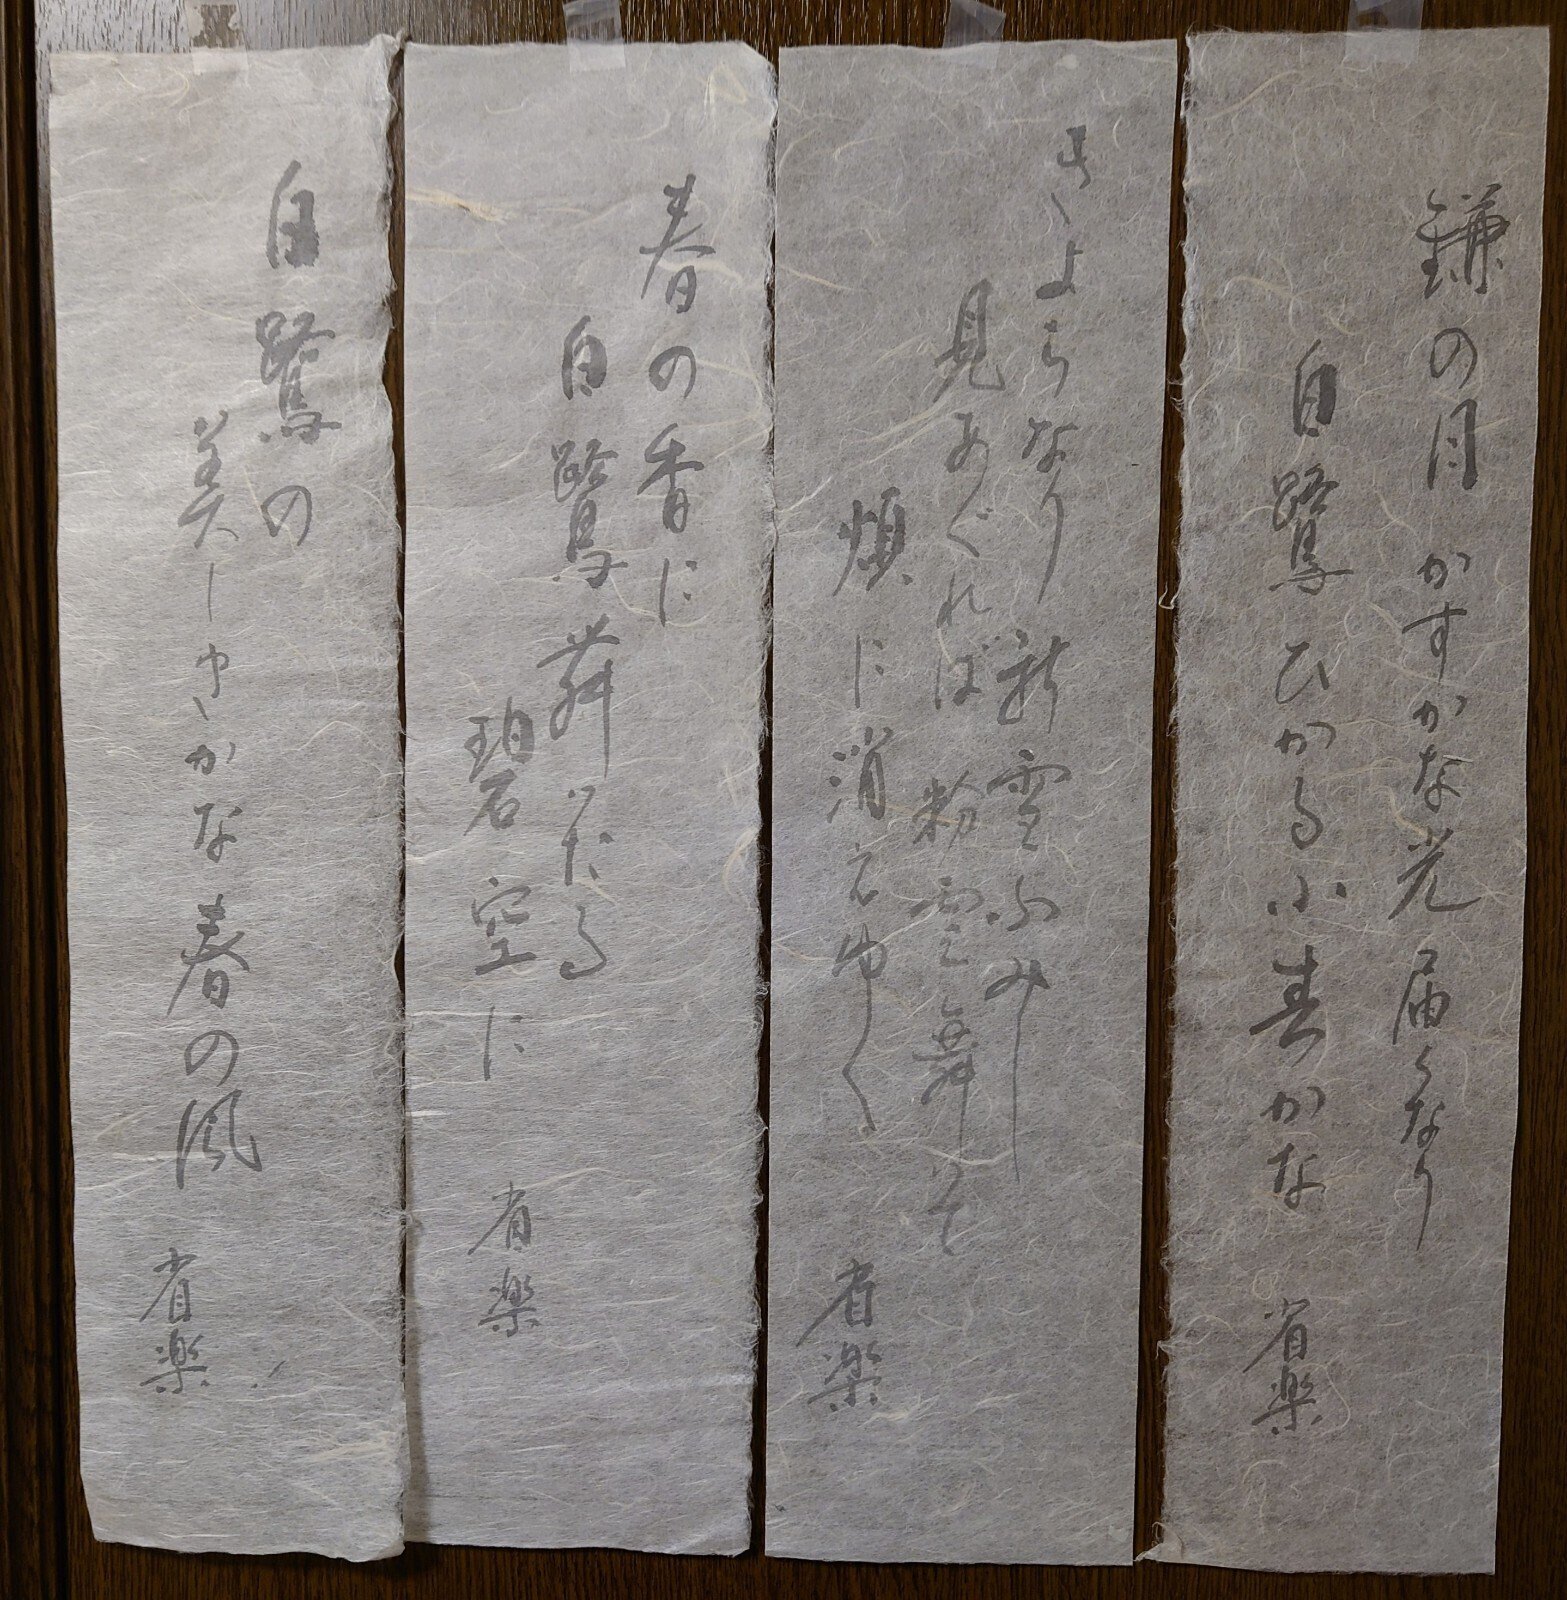 鎌の月かすかな光届くなり
白鷺ひかる小春かな
省楽
きよらなり新雪ふみし
見あぐれば粉雪舞いて
頬に消えゆく
省楽
春の香に
白鷺舞いたる
碧空に
省楽
白鷺の
美しきかな春の風
省楽